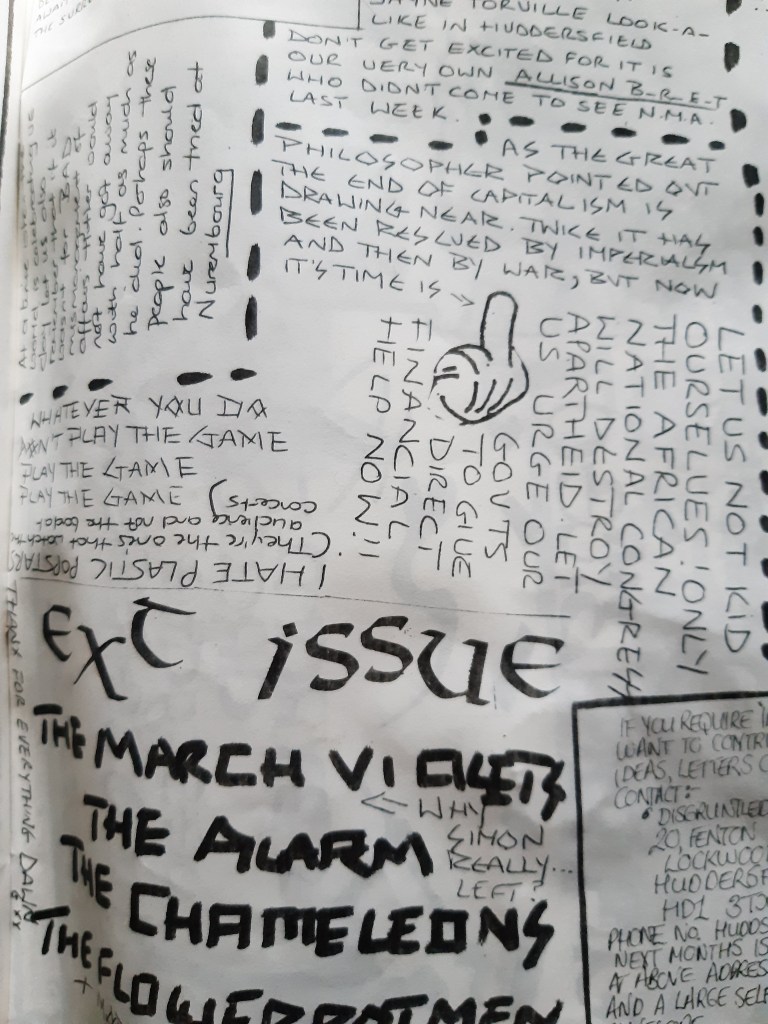 THE SURRE
JAYNE TORVILLE LOOK-A-
LIKE IN HUDDERSFIELD
DON'T GET EXCITED FOR IT IS
OUR VERY OWN ALLISON B-R-E-T
WHO DIDNT COME TO SEE N.M.A.
LAST WEEK.
AS THE GREAT
PHILOSOPHER POINTED OUT
THE END OF CAPITALISM IS
DRAWING NEAR. TWICE IT HAS
BEEN RESCUED BY IMPERIALISM
AND THEN BY WAR, BUT NOW
IT'S TIME IS
LET US NOT KID
OURSELVES! ONLY
THE AFRICAN
NATIONAL CONGRESS
WILL DESTROY
APARTHEID. LET
US URGE OUR
GOVTS
TO GIVE
DIRECT
FINANCIAL
HELP NOW!!
At a time when
world is celebrating
affairs Hitler would
not have got away
with half as much as
he did. Perhaps these
people also should
have been tried at
Nuremboug
WHATEVER YOU DO
DON'T PLAY THE GAME
PLAY THE GAME
PLAY THE GAME
I HATE PLASTIC POPSTARS
(They're the ones that watch the
audience and not the
concerts)
EXT ISSUE
THE MARCH VIOLETS
← WHY
SIMON
REALLY...
LEFT?
THE ALARM
THE CHAMELEONS
THE FLOWERPOTMEN
THANX FOR EVERYTHING DAWN
IF YOU REQUIRE
WANT TO CONTR
IDEAS, LETTERS
CONTACT:-
• DISGRUNTLED
20, FENTON
LOCKWOO
HUDDERSF
HD1 3T
PHONE NO. HUDDS
NEXT MONTHS IS
AT ABOVE ADDRES
AND A LARGE SEL